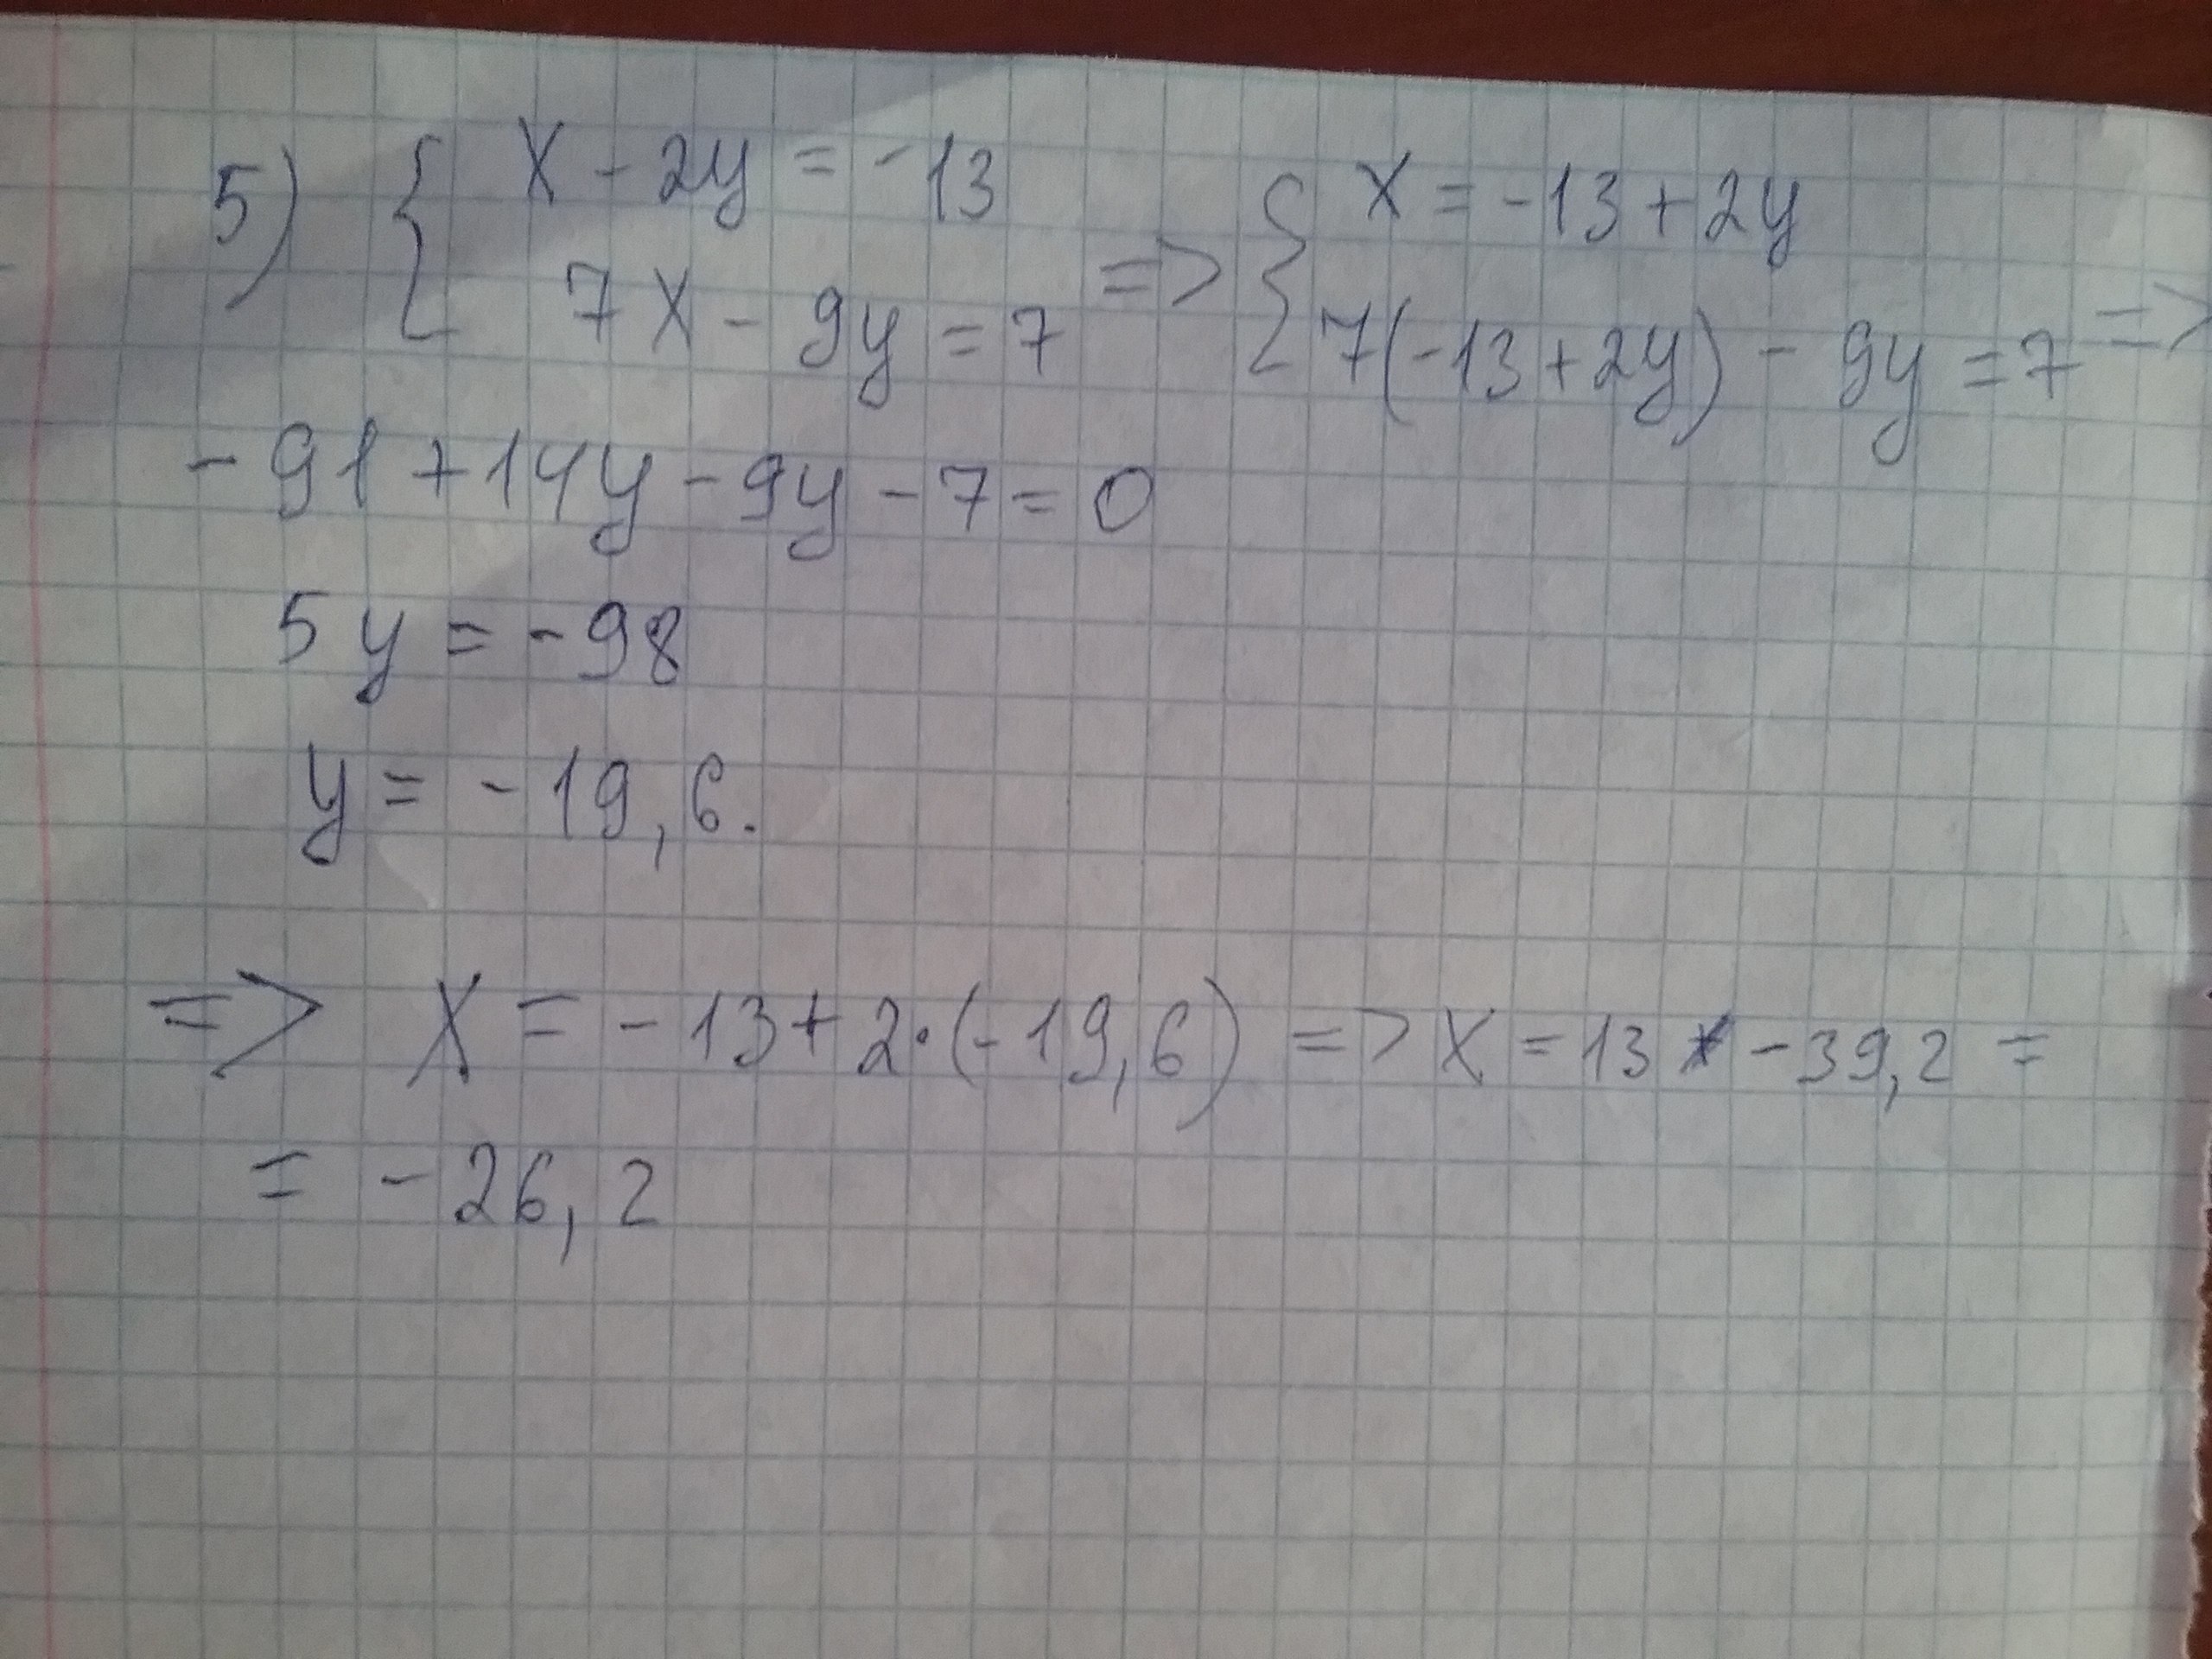 5) { x - 2y = -13 => { x = -13 + 2y
7x - 9y = 7 7(-13 + 2y) - 9y = 7 =>
- 91 + 14y - 9y - 7 = 0
5y = - 98
y = - 19,6.
=> x = - 13 + 2·(-19,6) => x = 13 - 39,2 =
= - 26,2